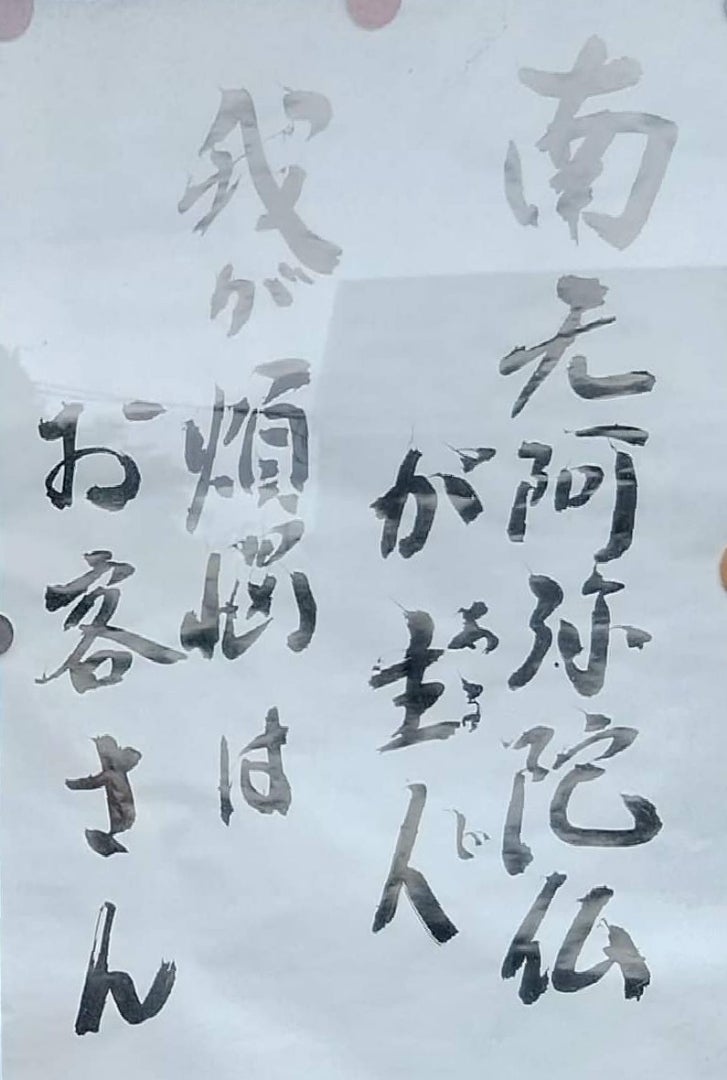 南无阿弥陀仏
が主人
あるじ
我が煩悩は
お客さん